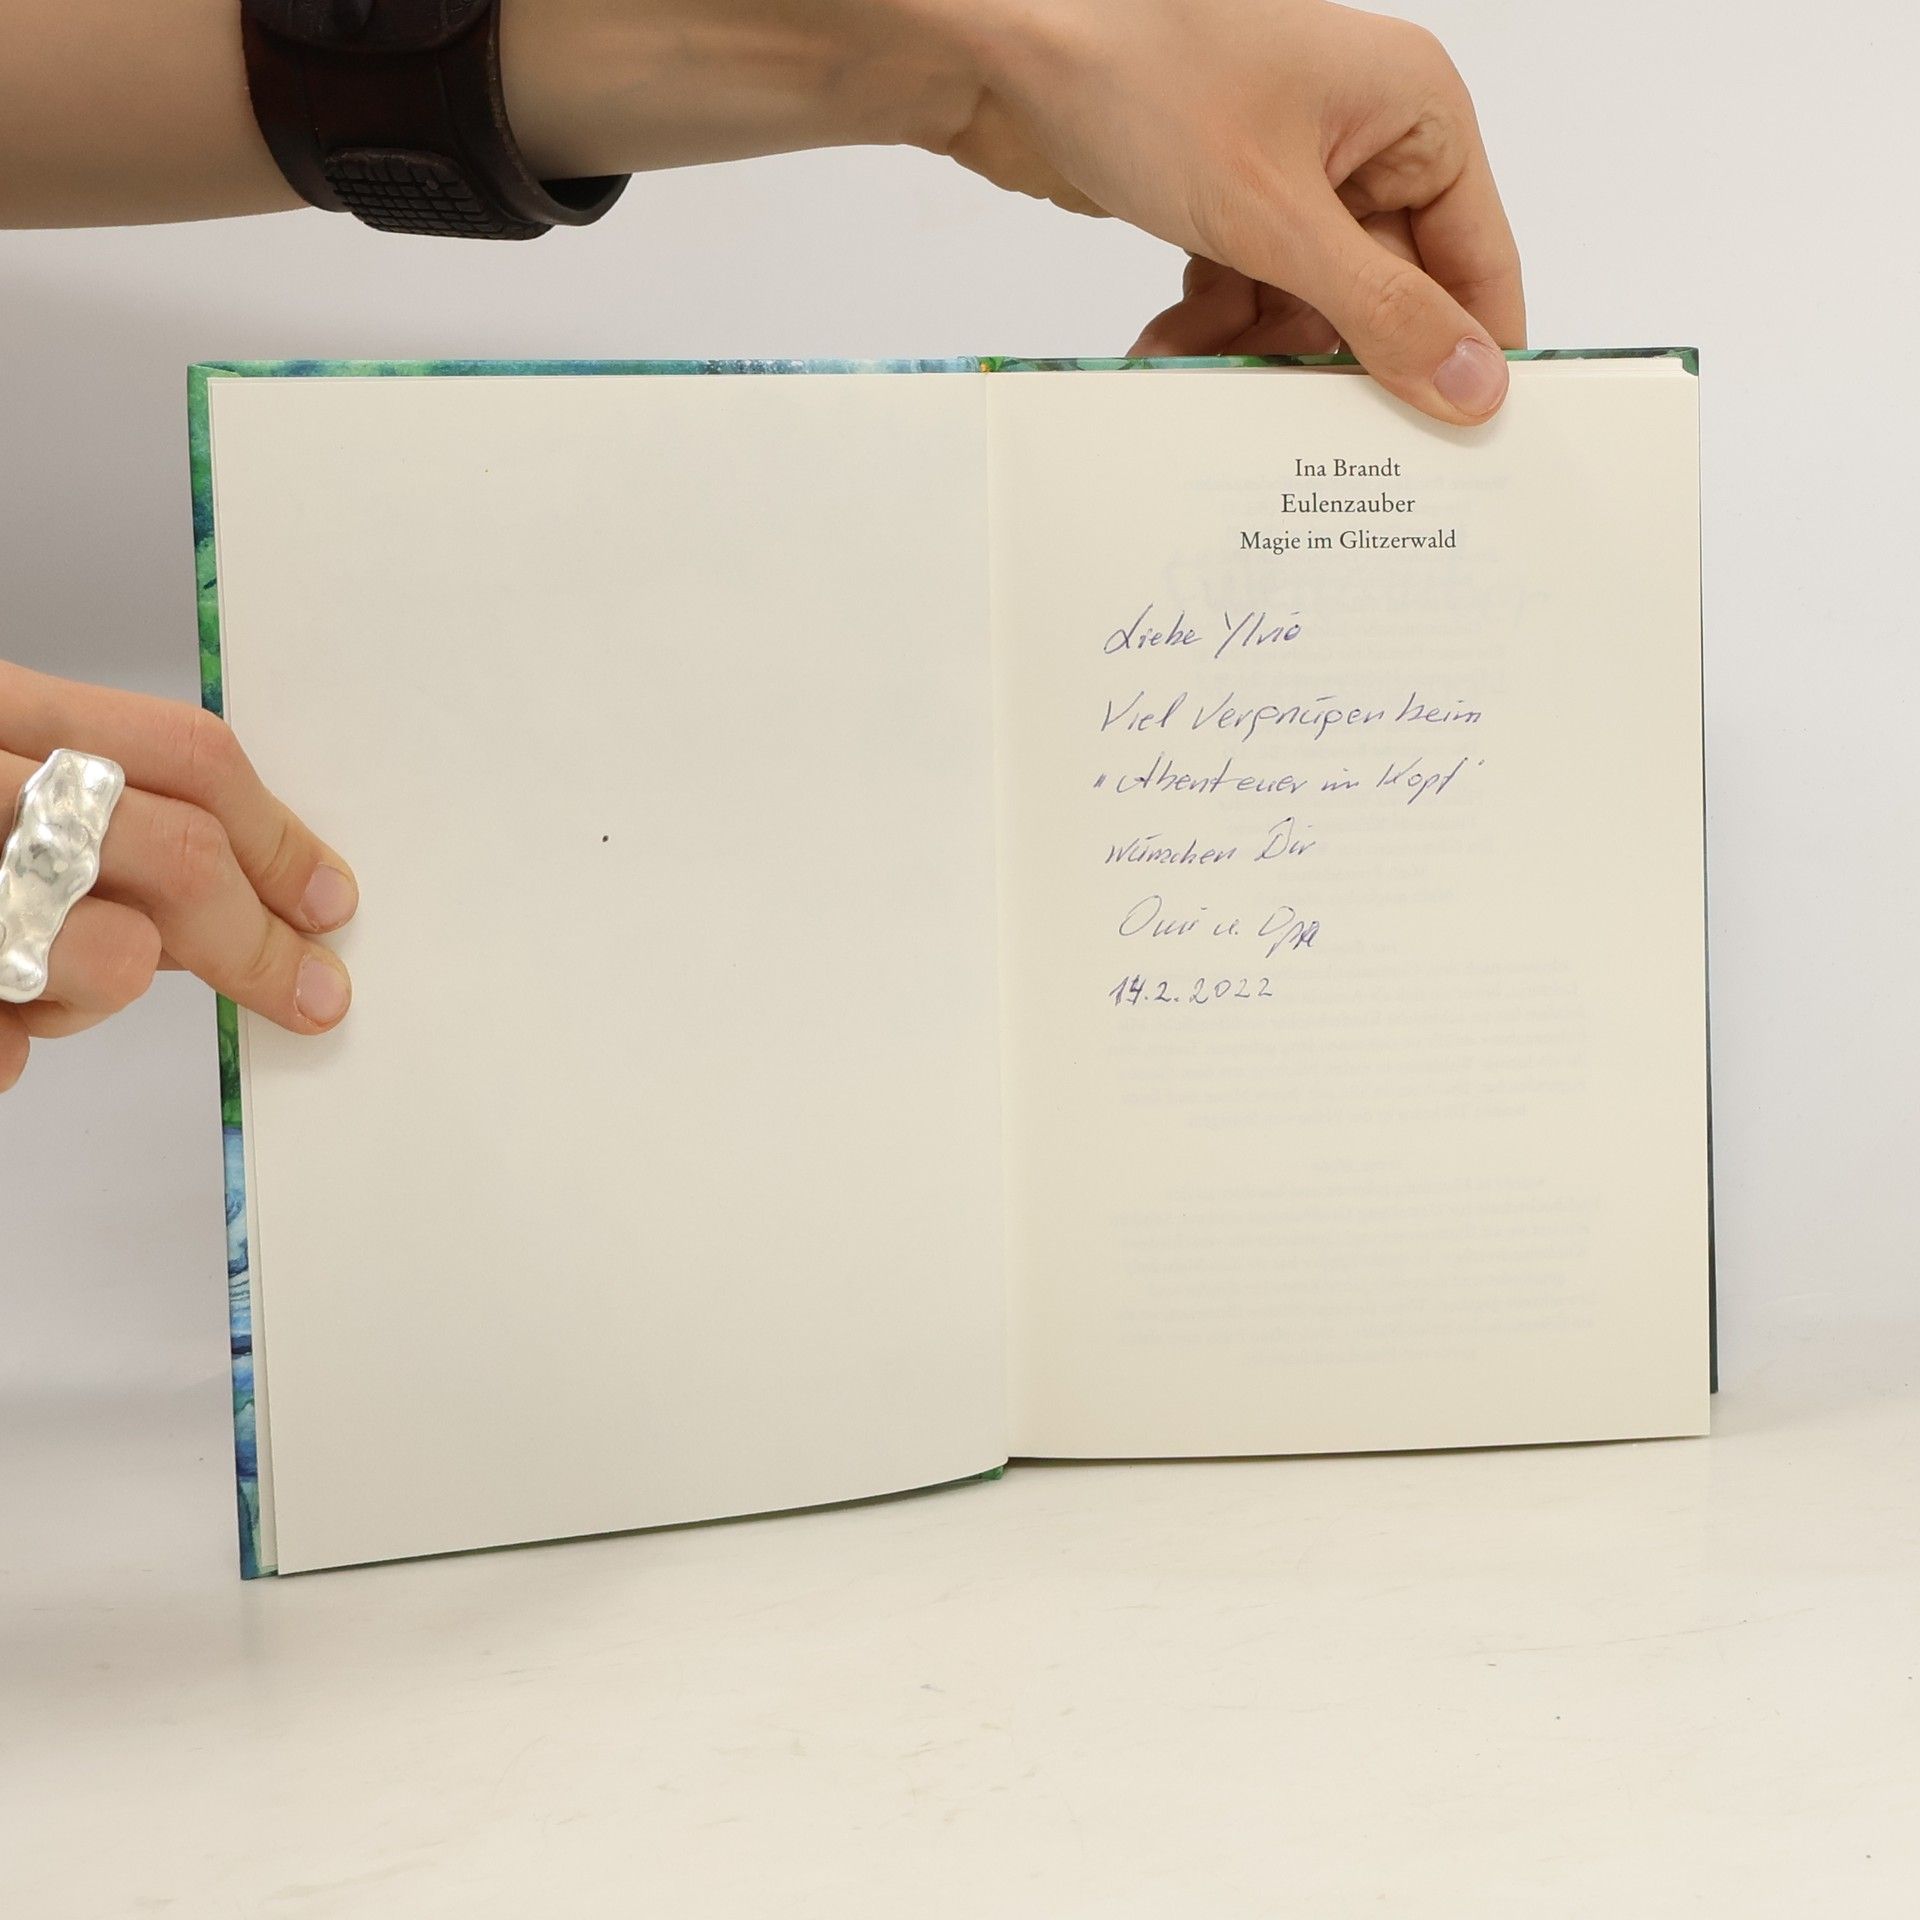 Ina Brandt
Eulenzauber
Magie im Glitzerwald
Liebe Ylvio
Viel Vergnügen beim
"Abenteuer im Kopf"
wünschen Dir
Omi u. Opa
14.2.2022